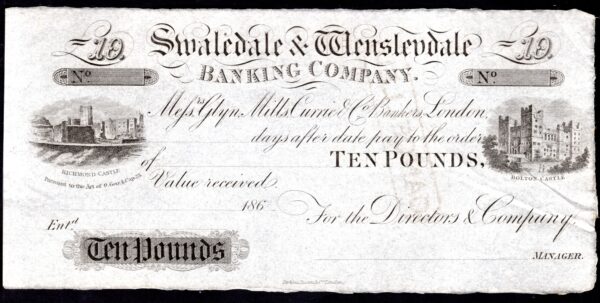 £10. Swaledale & Wensleydale £10.
No BANKING COMPANY. No
Messrs Glyn, Mills, Currie & Co. Bankers, London,
days after date pay to the order
TEN POUNDS,
of
RICHMOND CASTLE
BOLTON CASTLE
Pursuant to the Act of
Value received
186
For the Directors & Company.
Entd.
Ten Pounds
MANAGER.